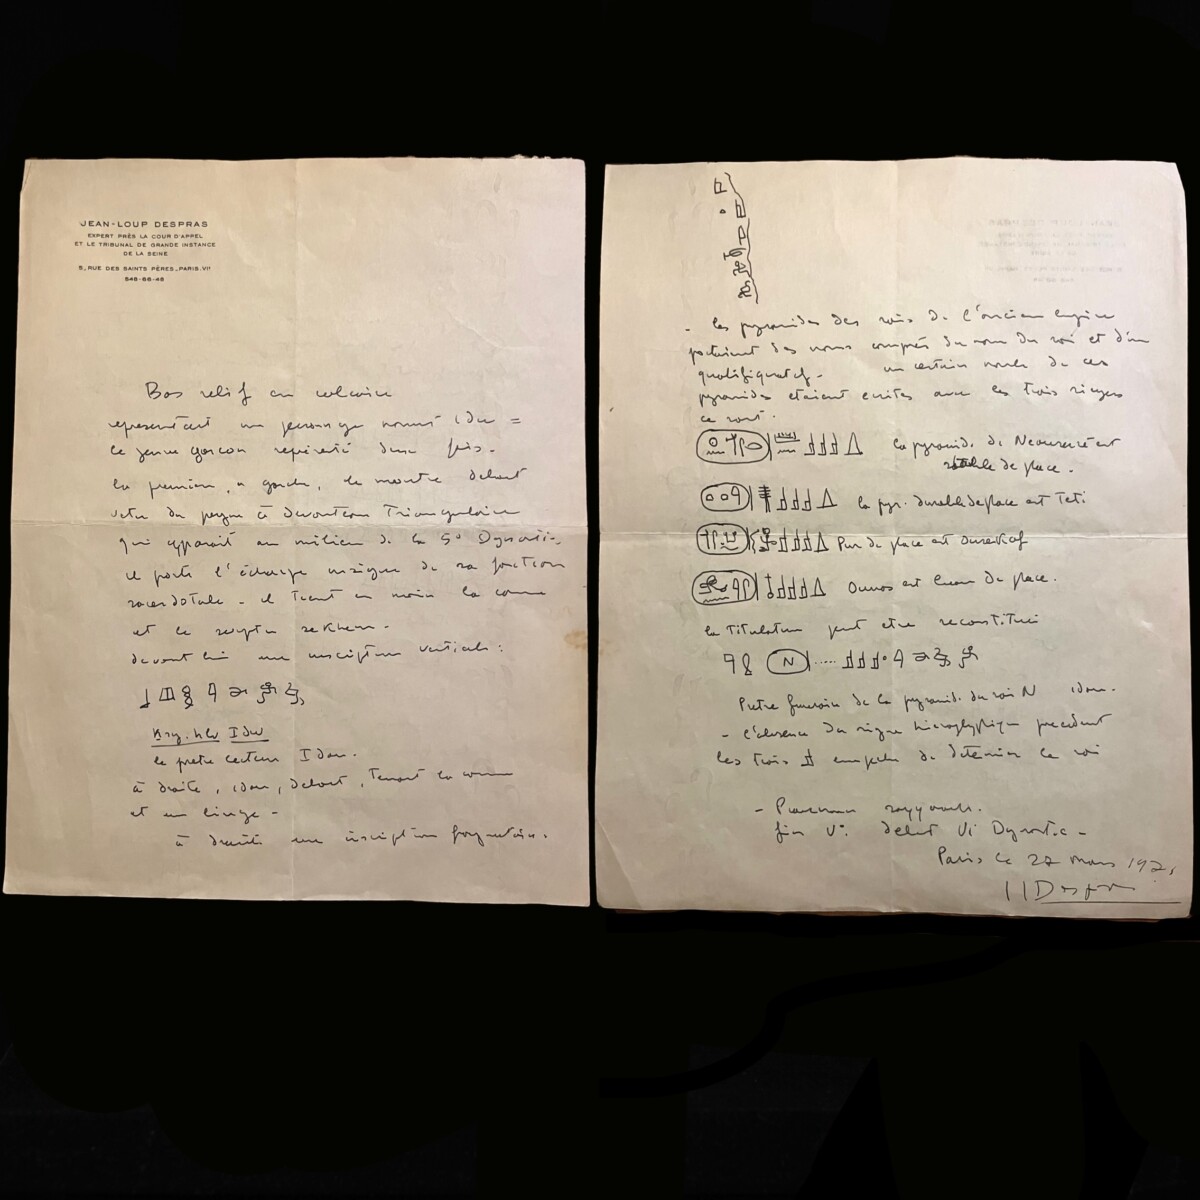 JEAN-LOUP DESPRAS
EXPERT PRÈS LA COUR D'APPEL
ET LE TRIBUNAL DE GRANDE INSTANCE
DE LA SEINE
5, RUE DES SAINTS PÈRES, PARIS. VIIᵉ
548-66-48
Bas relief en calcaire
représentant un personnage nommé Idou =
ce jeune garçon représenté deux fois.
la première, à gauche, le montre debout
vetu du pagne à devanteau Triangulaire
qui apparait au milieu de la 5° Dynastie.
il porte l'écharpe insigne de sa fonction
sacerdotale - il tient en main la canne
et le sceptre sekhem -
devant lui une inscription verticale :
Idw
le pretre lecteur Idou.
à droite, idou, debout, tenant la canne
et un linge -
à droite une inscription fragmentaire.
- les pyramides des rois de l'ancien empire
portaient des noms composés du nom du roi et d'un
qualifiquatif - un certain nombre de ces
pyramides étaient écrites avec les trois signes
ce sont.
la pyramide de Neouserré est
stable de place.
la pyr. durable de place est Teti
Pure de place est Ouserkaf
Ounas est beau de place.
la Titulature peut etre reconstituée
N
Pretre funeraire de la pyramide du roi N idou.
- l'absence du signe hieroglyphique precedent
les trois empeche de determiner le roi
- Provenance saqqarah.
fin V° debut VI Dynastie -
Paris le 27 mars 197
JLDespras